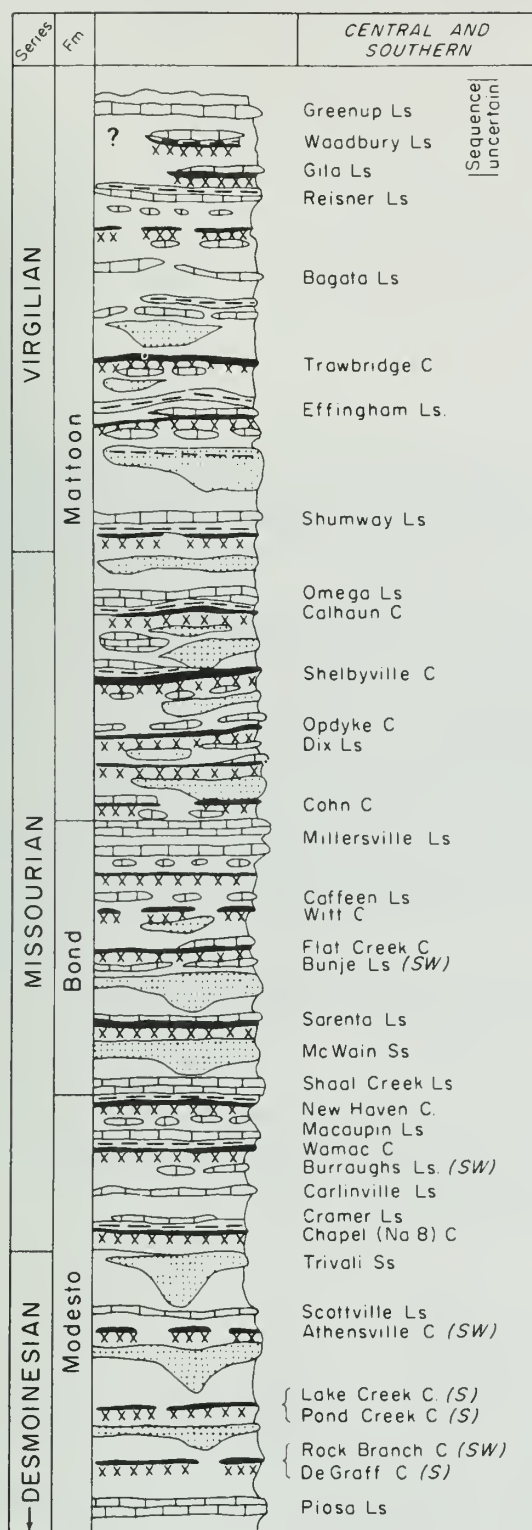 Series
Fm
CENTRAL AND
SOUTHERN
Sequence
uncertain
VIRGILIAN
MISSOURIAN
DESMOINESIAN
Mattoon
Bond
Modesto
?
Greenup Ls
Waadbury Ls
Gila Ls
Reisner Ls
Bagata Ls
Trawbridge C
Effingham Ls.
Shumway Ls
Omega Ls
Calhaun C
Shelbyville C
Opdyke C
Dix Ls
Cohn C
Millersville Ls
Caffeen Ls
Witt C
Flat Creek C
Bunje Ls (SW)
Sarenta Ls
McWain Ss
Shaal Creek Ls
New Haven C.
Macaupin Ls
Wamac C
Burraughs Ls. (SW)
Carlinville Ls
Cramer Ls
Chapel (Na 8) C
Trivali Ss
Scottville Ls
Athensville C (SW)
Lake Creek C. (S)
Pond Creek C (S)
Rock Branch C (SW)
DeGraff C (S)
Piosa Ls